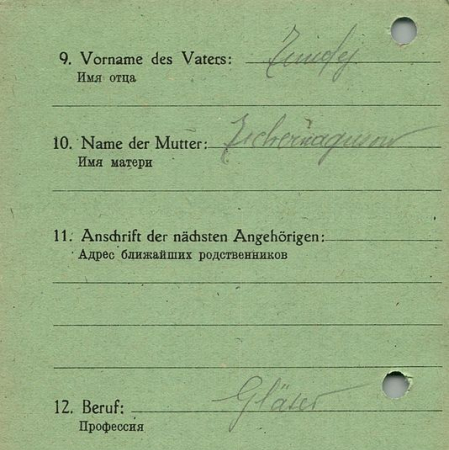 9. Vorname des Vaters:
Имя отца
10. Name der Mutter:
Имя матери
11. Anschrift der nächsten Angehörigen:
Адрес ближайших родственников
12. Beruf: Gläser
Профессия